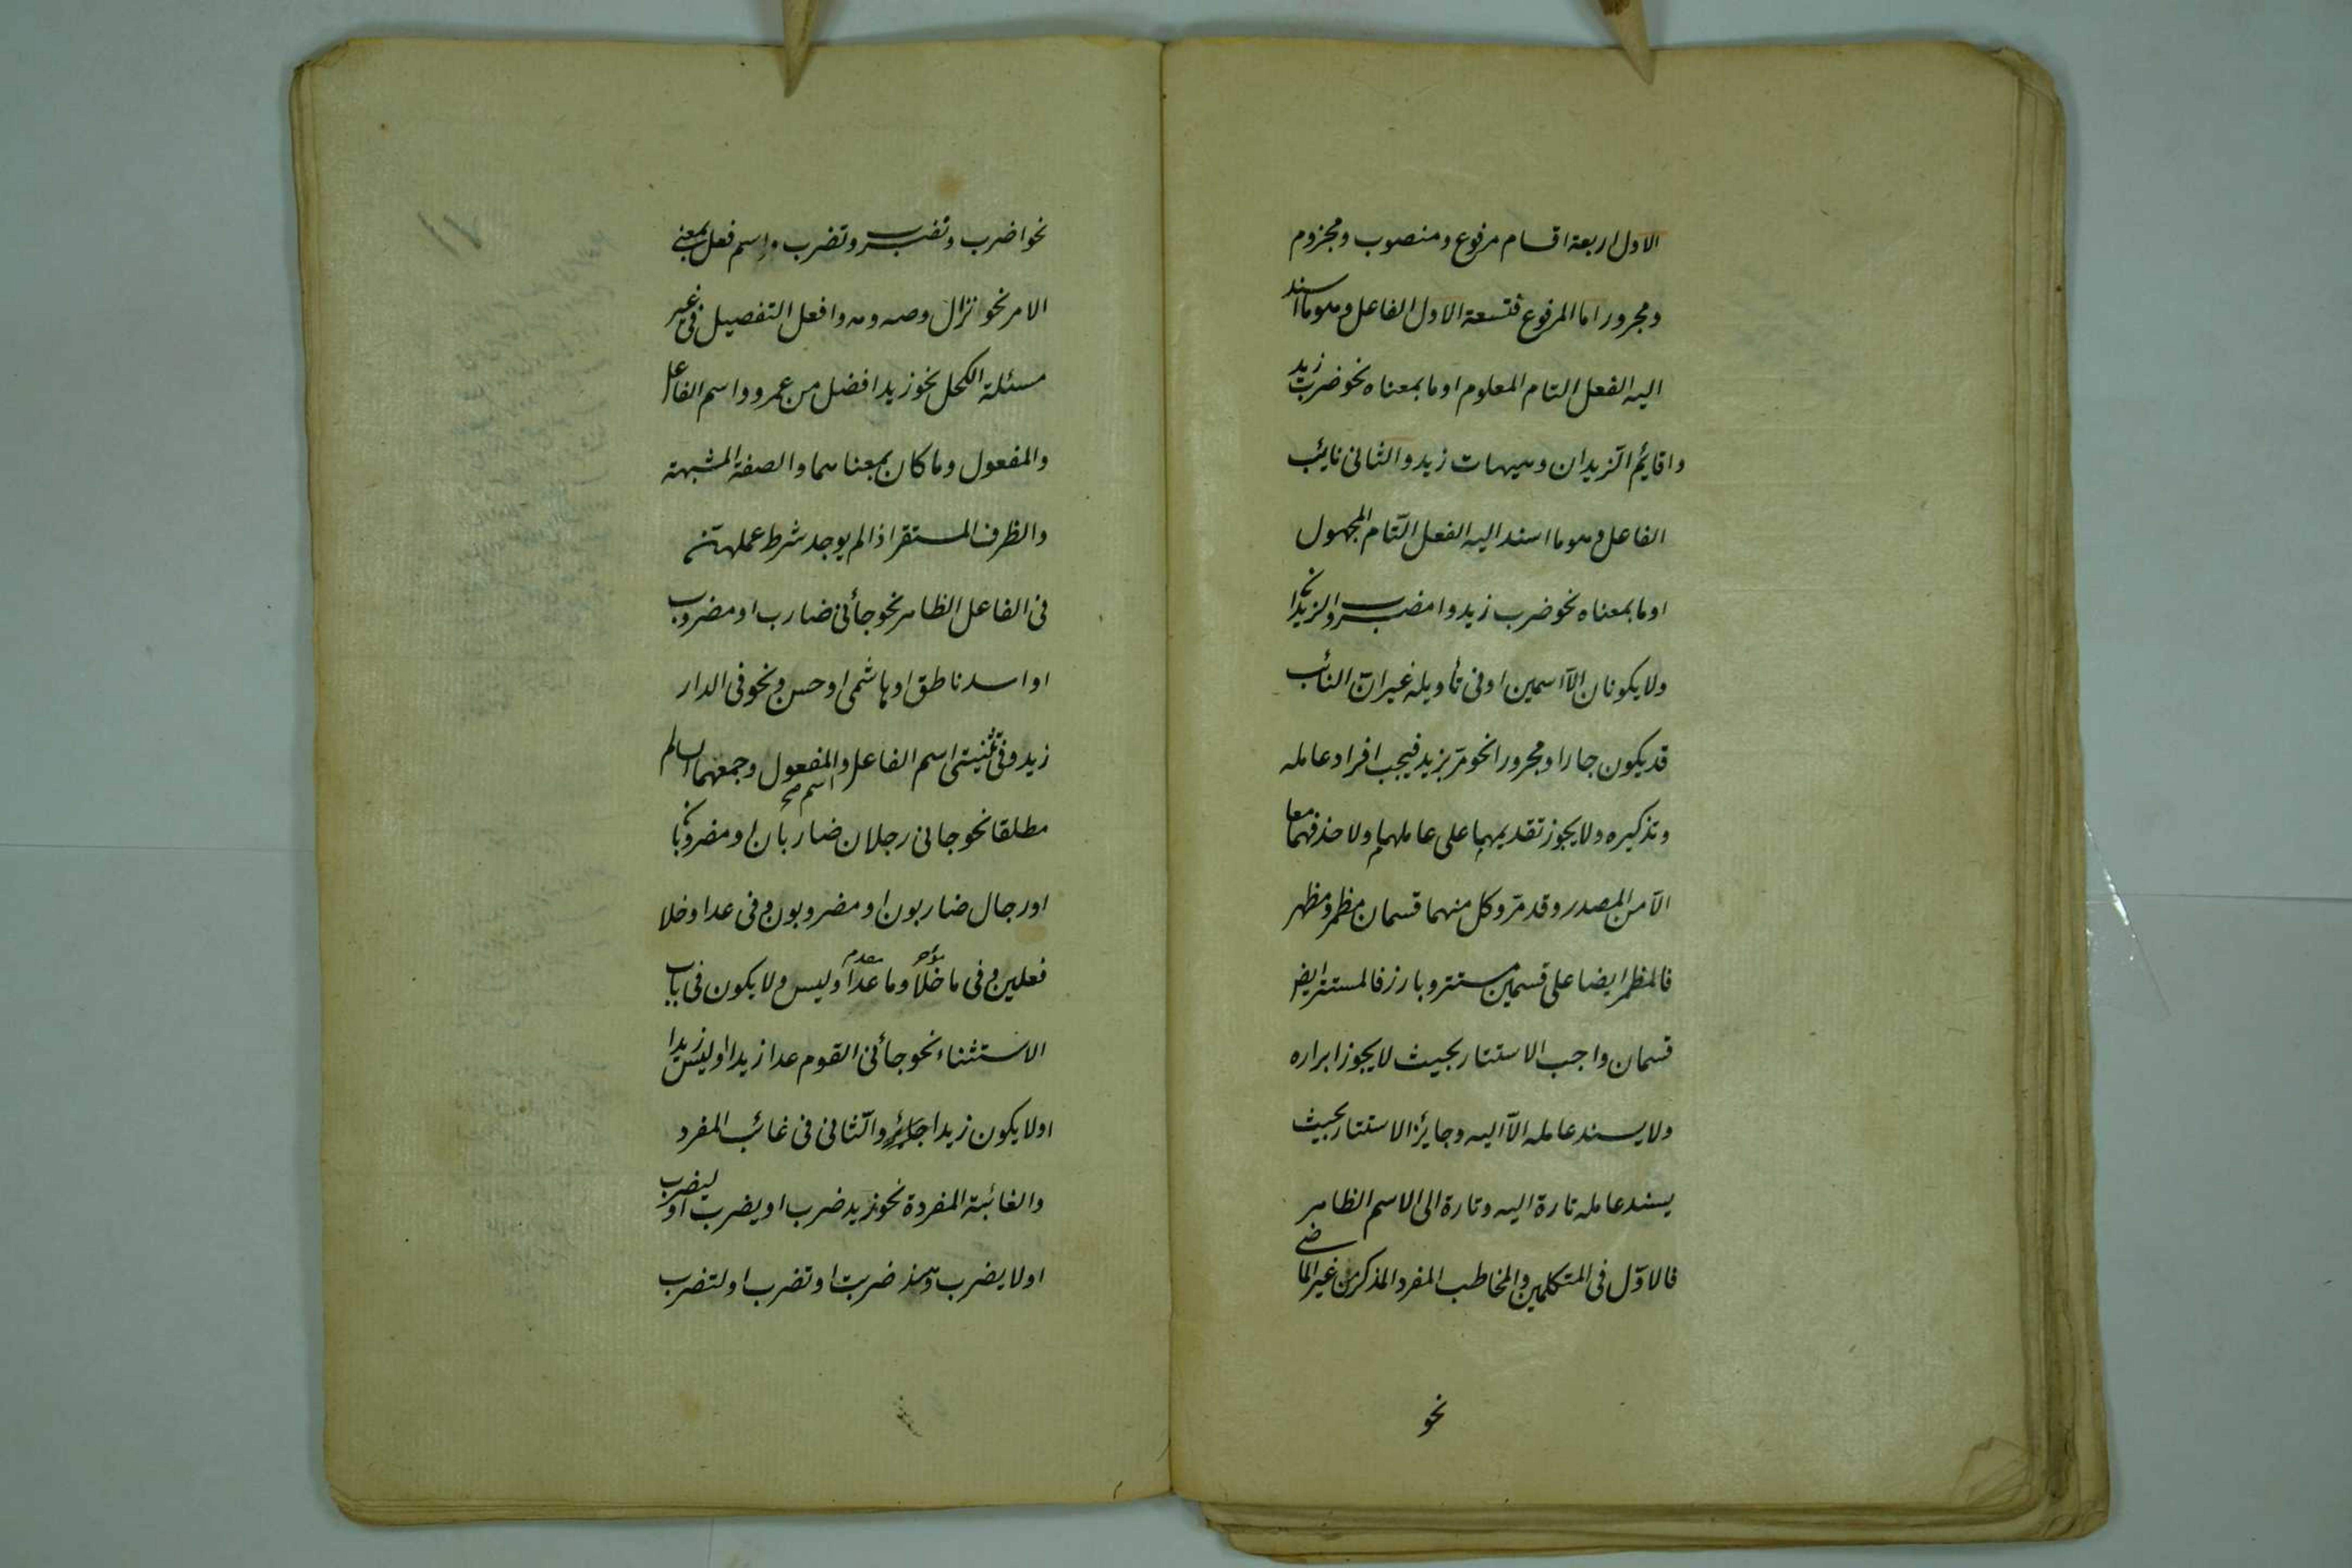 الاول اربعة اقسام مرفوع ومنصوب ومجزوم
ومجرور اما المرفوع فتسعة الاول الفاعل وهو ما اسند
اليه الفعل التام المعلوم او ما بمعناه نحو ضرب زيد
واقائم الزيدان وهيهات زيد والثانى نائب
الفاعل وهو ما اسند اليه الفعل التّام المجهول
او ما بمعناه نحو ضرب زيد وا مضروب الزيدان
ولا يكونان الّا اسمين او فى تأويله غير ان النائب
قد يكون جارا ومجرورا نحو مرّ بزيد فيجب افراد عامله
وتذكيره ولا يجوز تقديمهما على عاملهما ولا حذفهما معا
الّا من المصدر وقد مرّ وكل منهما قسمان مظمر ومظهر
فالمظمر ايضا على قسمين مستتر وبارز فالمستتر ايض
قسمان واجب الاستتار بحيث لا يجوز ابراره
ولا يسند عامله الّا اليه وجائز الاستتار بحيث
يسند عامله تارة اليه وتارة الى الاسم الظاهر
فالاوّل فى المتكلمين والمخاطب المفرد المذكر من غير الماضى
نحو
١١
نحو اضرب ونضرب وتضرب واسم فعل بمعنى
الامر نحو نزال وصه ومه وافعل التفصيل فى غير
مسئلة الكحل نحو زيد افضل من عمرو واسم الفاعل
والمفعول وما كان بمعناهما والصفة المشبهة
والظرف المستقر اذا لم يوجد شرط عملهن
فى الفاعل الظاهر نحو جأنى ضارب او مضروب
او اسد ناطق او هاشمى او حسن ونحو فى الدار
زيد وفى تثنيتى اسم الفاعل والمفعول وجمعهما السالم
اسم صح
مطلقا نحو جانى رجلان ضاربان او مضروبان
او رجال ضاربون او مضروبون وفى عدا وخلا
فعلين وفى ما خلا وما عدا وليس ولا يكون فى باب
الاستثناء نحو جأنى القوم عدا زيدا او ليس زيدا
او لا يكون زيدا والثانى فى غائب المفرد
والغائبة المفردة نحو زيد ضرب او يضرب او ليضرب
او لا يضرب وهند ضربت او تضرب او لتضرب